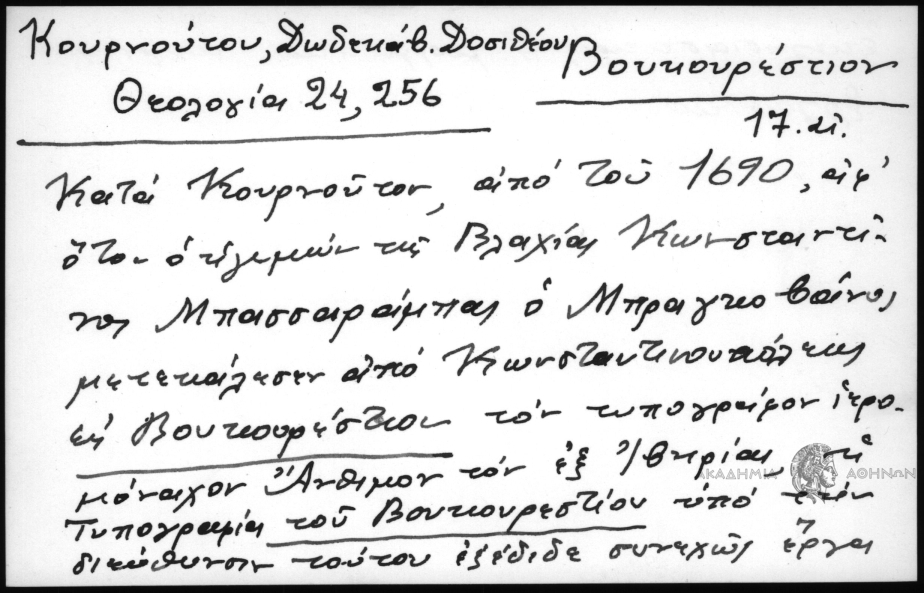 Κουρνούτου, Δωδεκάβ. Δοσιθέου
Θεολογία 24, 256
Βουκουρέστιον
17. αι.
Κατά Κουρνοῦτον, ἀπό τοῦ 1690, ἀφ'
ὅτου ὁ ἡγεμών τῆς Βλαχίας Κωνσταντῖ-
νος Μπασσαράμπας ὁ Μπραγκοβᾶνος
μετεκάλεσεν ἀπό Κωνσταντινουπόλεως
εἰς Βουκουρέστιον τόν τυπογράφον ἱερο-
μόναχον Ἄνθιμον τόν ἐξ Ἰβηρίας, ἡ
ΑΚΑΔΗΜΙΑ ΑΘΗΝΩΝ
Τυπογραφία τοῦ Βουκουρεστίου ὑπό τήν
διεύθυνσιν τούτου ἐξέδιδε συνεχῶς ἔργα